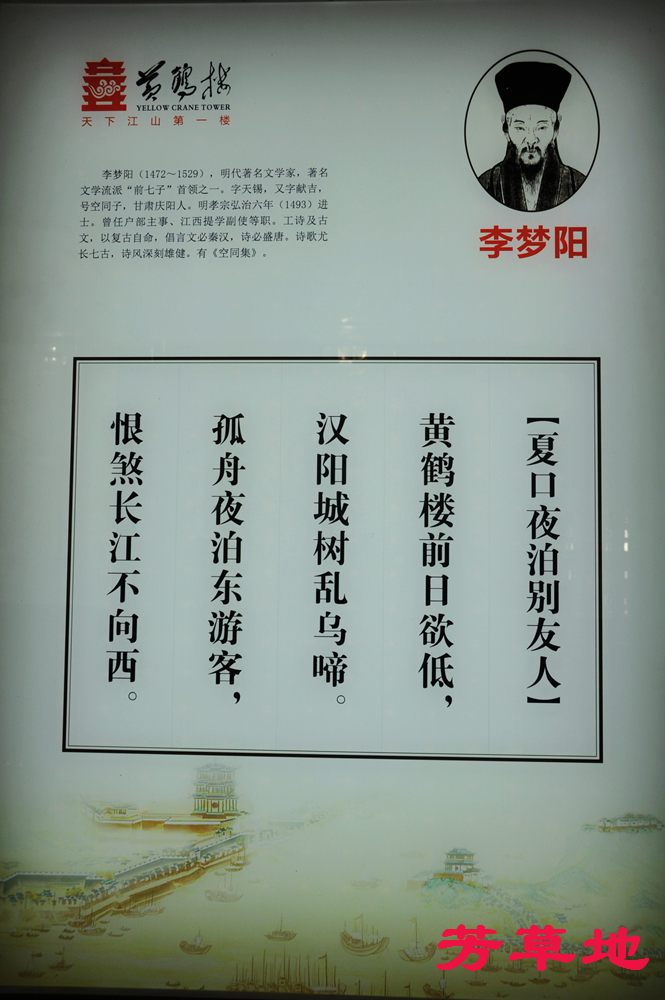 黄鹤楼
YELLOW CRANE TOWER
天下江山第一楼
李梦阳（1472～1529），明代著名文学家，著名
文学流派“前七子”首领之一。字天锡，又字献吉，
号空同子，甘肃庆阳人。明孝宗弘治六年（1493）进
士。曾任户部主事、江西提学副使等职。工诗及古
文，以复古自命，倡言文必秦汉，诗必盛唐。诗歌尤
长七古，诗风深刻雄健。有《空同集》。
李梦阳
【夏口夜泊别友人】
黄鹤楼前日欲低，
汉阳城树乱乌啼。
孤舟夜泊东游客，
恨煞长江不向西。
芳草地